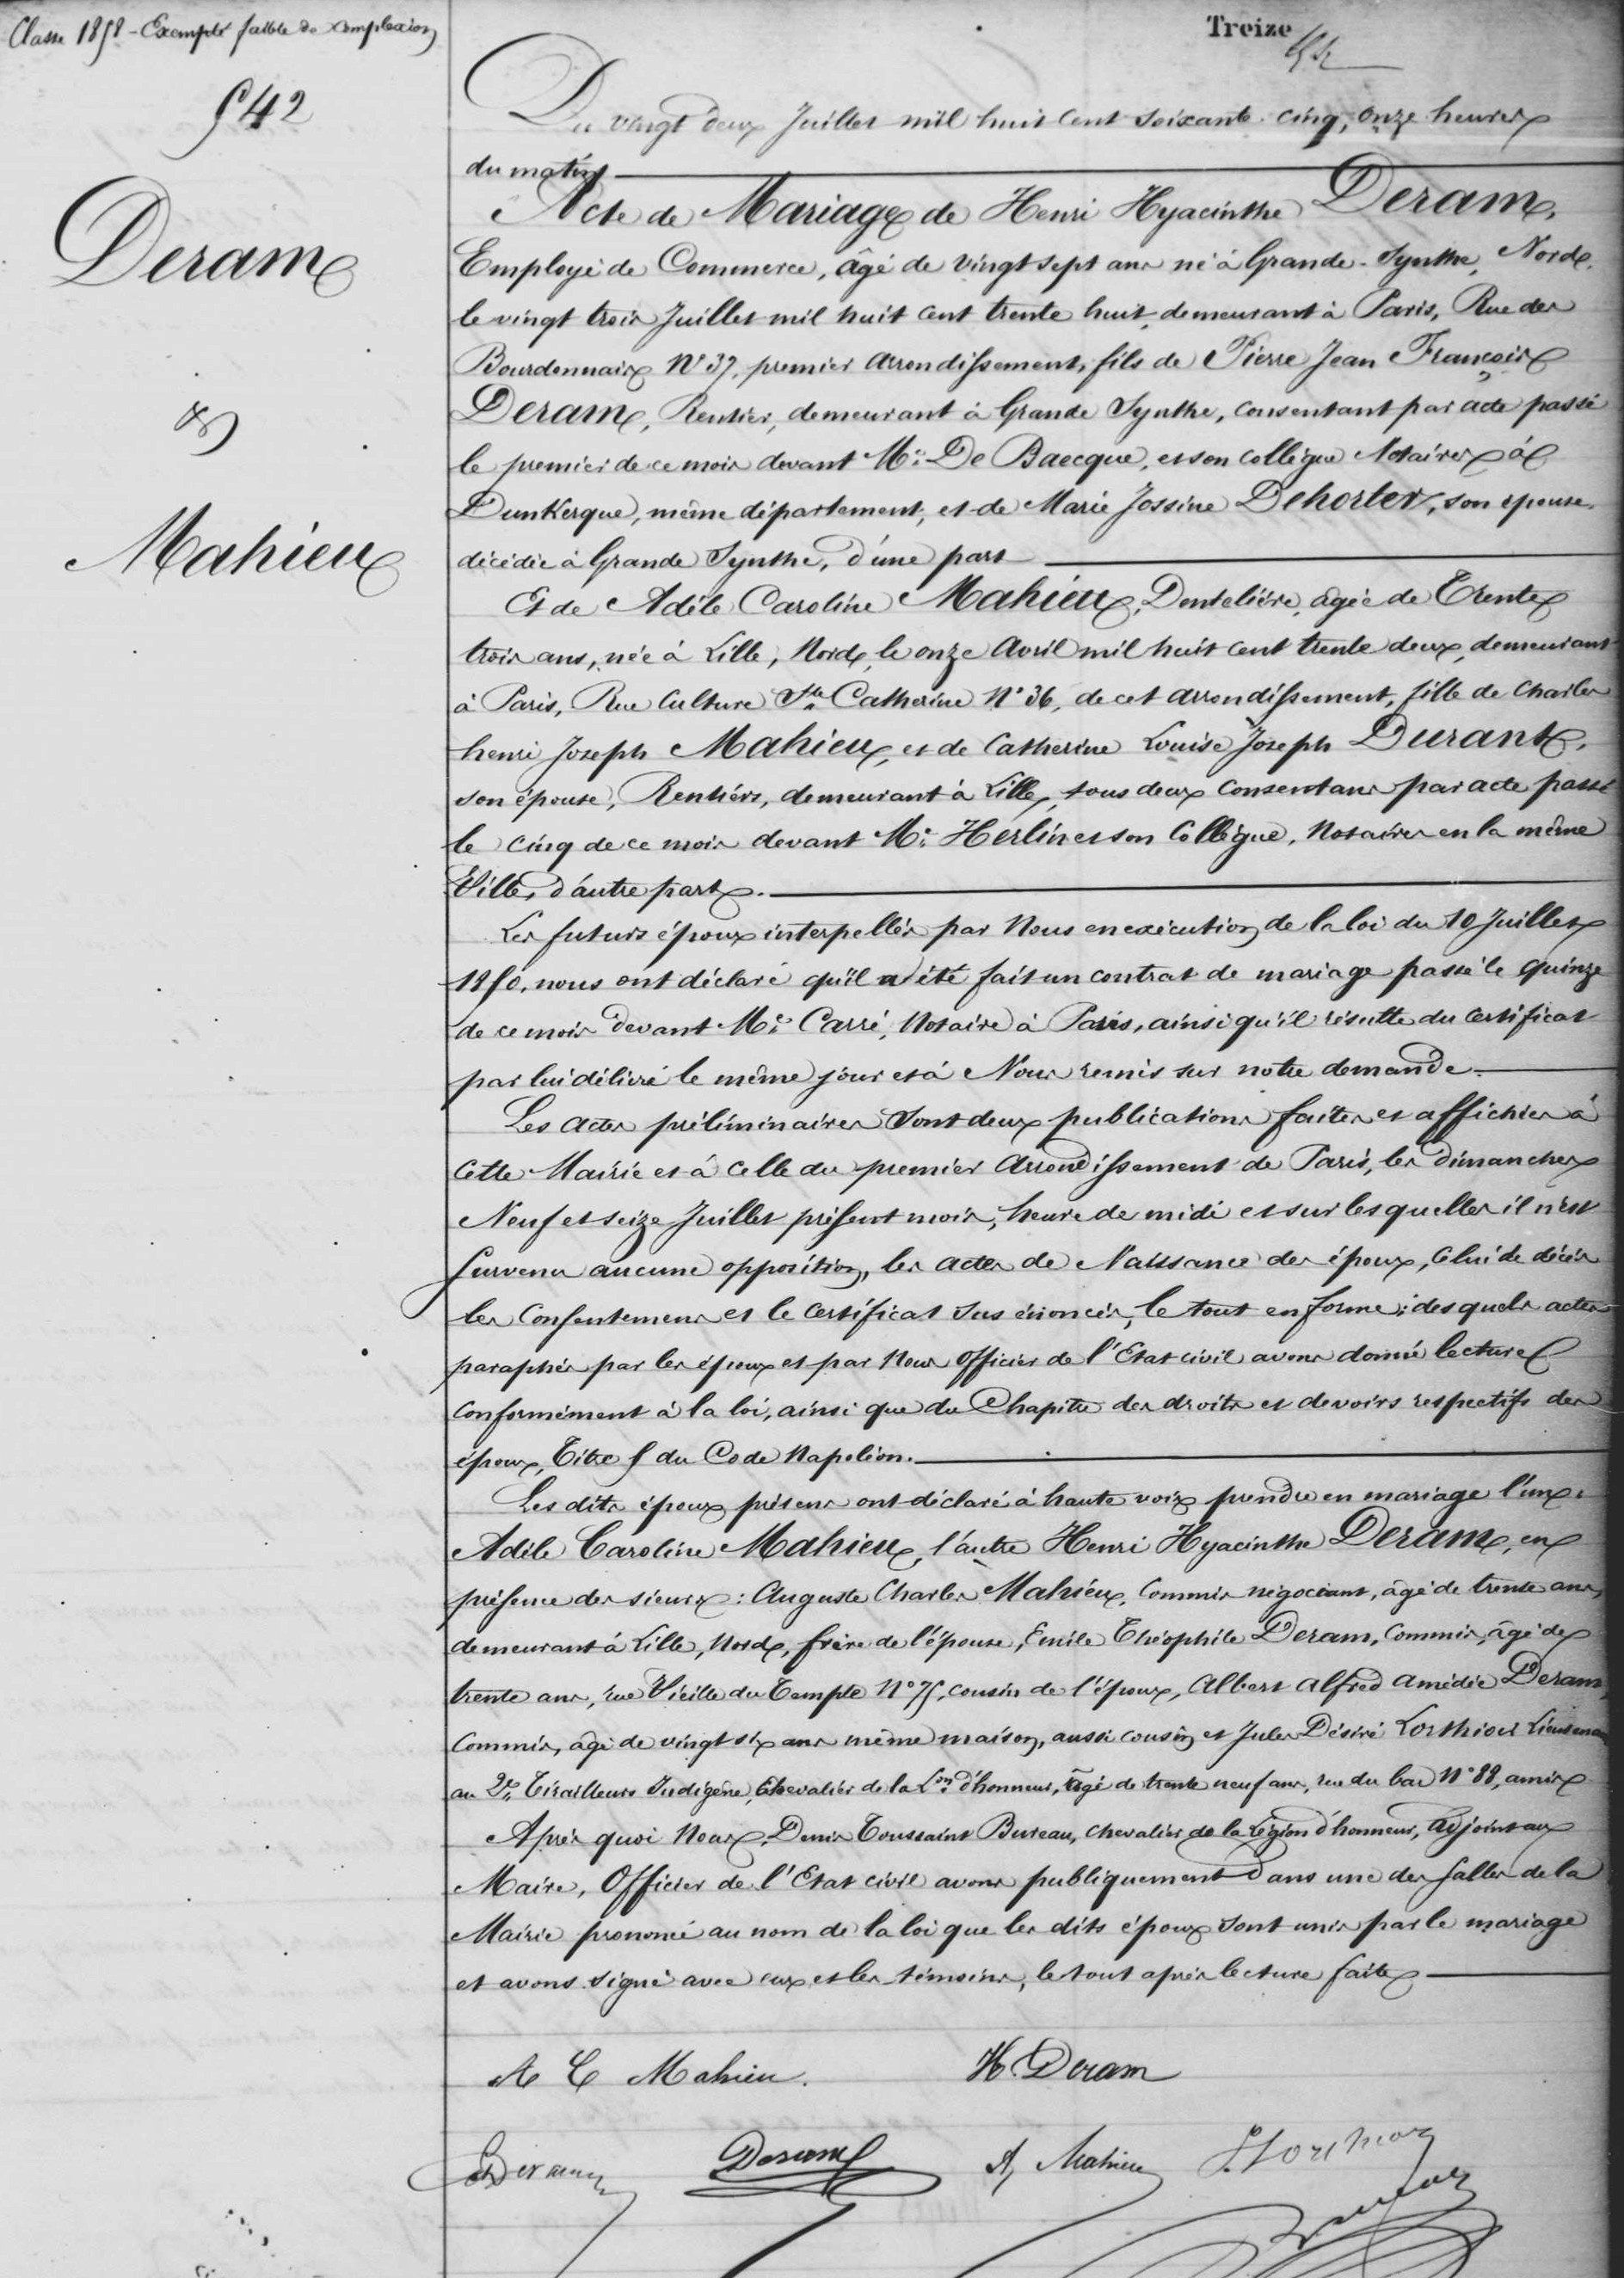 Classe 1858 - Exempté faible de complexion
Treize
542
Deram
&
Mahieu
Du vingt deux Juillet mil huit cent soixante cinq, onze heures
du matin
Acte de Mariage de Henri Hyacinthe Deram,
Employé de Commerce, âgé de vingt sept ans né à Grande-Synthe, Nord,
le vingt trois Juillet mil huit cent trente huit, demeurant à Paris, Rue des
Bourdonnais N° 37, premier arrondissement, fils de Pierre Jean François
Deram, Rentier, demeurant à Grande Synthe, consentant par acte passé
le premier de ce mois devant Me. De Baecque, et son collègue Notaires à
Dunkerque, même département, et de Marie Jossine Dehorter, son épouse,
décédée à Grande Synthe, d'une part
Et de Adèle Caroline Mahieu, Dentelière, âgée de Trente
trois ans, née à Lille, Nord, le onze Avril mil huit cent trente deux, demeurant
à Paris, Rue Culture Ste Catherine N° 36, de cet arrondissement, fille de Charles
henri Joseph Mahieu, et de Catherine Louise Joseph Durant,
son épouse, Rentiers, demeurant à Lille, tous deux consentans par acte passé
le cinq de ce mois devant Me. Herlin et son Collègue, Notaires en la même
Ville, d'autre part.
Les futurs époux interpellés par Nous en exécution de la loi du 10 Juillet
1850, nous ont déclaré qu'il a été fait un contrat de mariage passé le quinze
de ce mois devant Me. Carré, Notaire à Paris, ainsi qu'il résulte du certificat
par lui délivré le même jour et à Nous remis sur notre demande.
Les actes préliminaires sont deux publications faites et affichées à
cette Mairie et à celle du premier Arrondissement de Paris, les dimanches
Neuf et seize Juillet présent mois, heure de midi et sur lesquelles il n'est
survenu aucune opposition, les actes de Naissance des époux, celui de décès
les consentemens et le certificat sus énoncés, le tout en forme; desquels actes
paraphés par les époux et par Nous Officier de l'Etat civil avons donné lecture
conformément à la loi, ainsi que du Chapitre des droits et devoirs respectifs des
époux, Titre 5 du Code Napoléon.
Les dits époux présens ont déclaré à haute voix prendre en mariage l'un,
Adèle Caroline Mahieu, l'autre Henri Hyacinthe Deram, en
présence des sieurs : Auguste Charles Mahieu, Commis négociant, âgé de trente ans,
demeurant à Lille, Nord, frère de l'épouse, Emile Théophile Deram, Commis, âgé de
trente ans, rue Vieille du Temple N° 75, cousin de l'époux, Albert Alfred Amédée Deram,
Commis, âgé de vingt six ans même maison, aussi cousin et Jules Désiré Lorthioir Lieutenant
au 2e. Tirailleurs Indigène, Chevalier de la Lon d'honneur, âgé de trente neuf ans, rue du bac N° 88, amis
Après quoi Nous, Denis Toussaint Bureau, chevalier de la Légion d'honneur, Adjoint au
Maire, Officier de l'Etat civil avons publiquement dans une des salles de la
Mairie prononcé au nom de la loi que les dits époux sont unis par le mariage
et avons signé avec eux et les témoins, le tout après lecture faite
A C Mahieu. H Deram
E Deram Deram A Mahieu